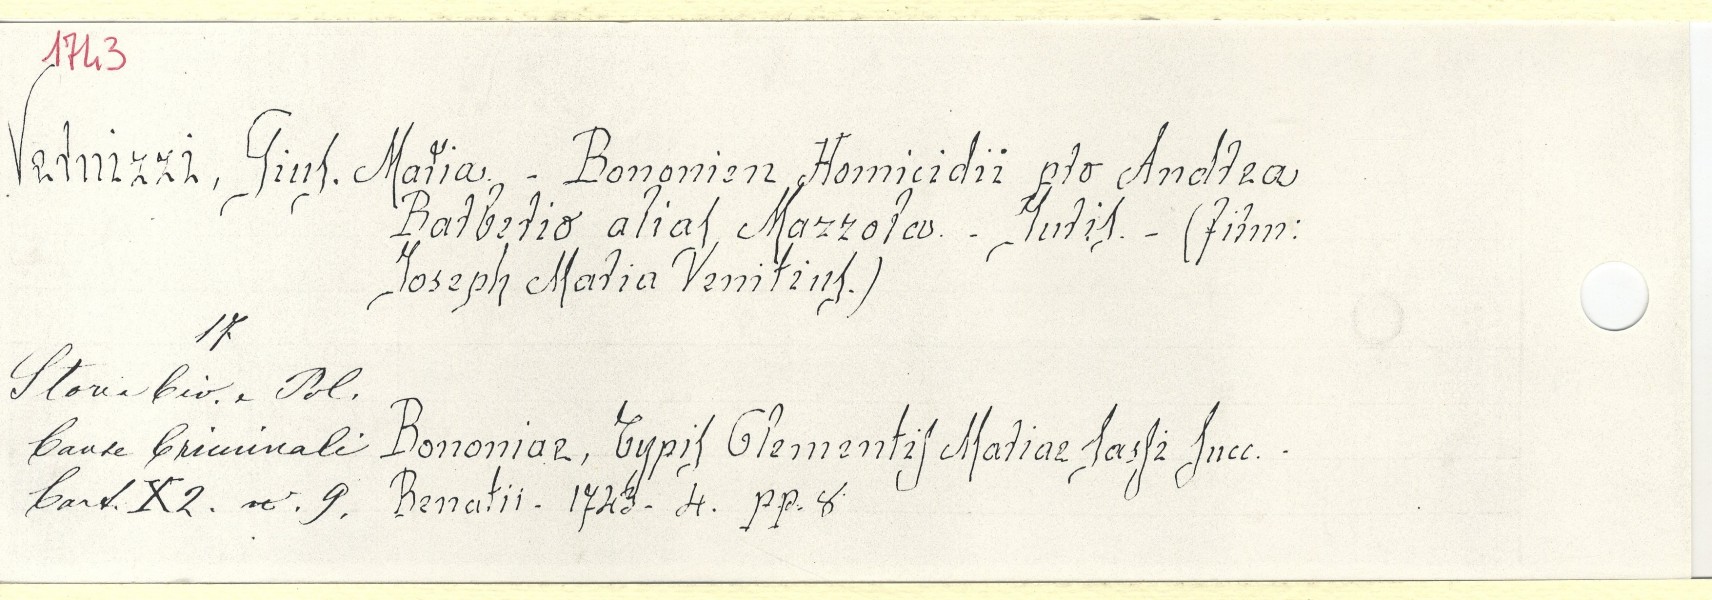 1743
Vernizzi, Gius. Maria. - Bononien Homicidii pro Andrea
Barberio alias Mazzola. - Juris. - (firm:
Joseph Maria Vernitius.)
17
Storia Civ. e Pol.
Cause Criminali Bononiae, Typis Clementis Mariae Sassi Succ. -
Cart. X2. n. 9. Benatii - 1743 - 4. pp. 8